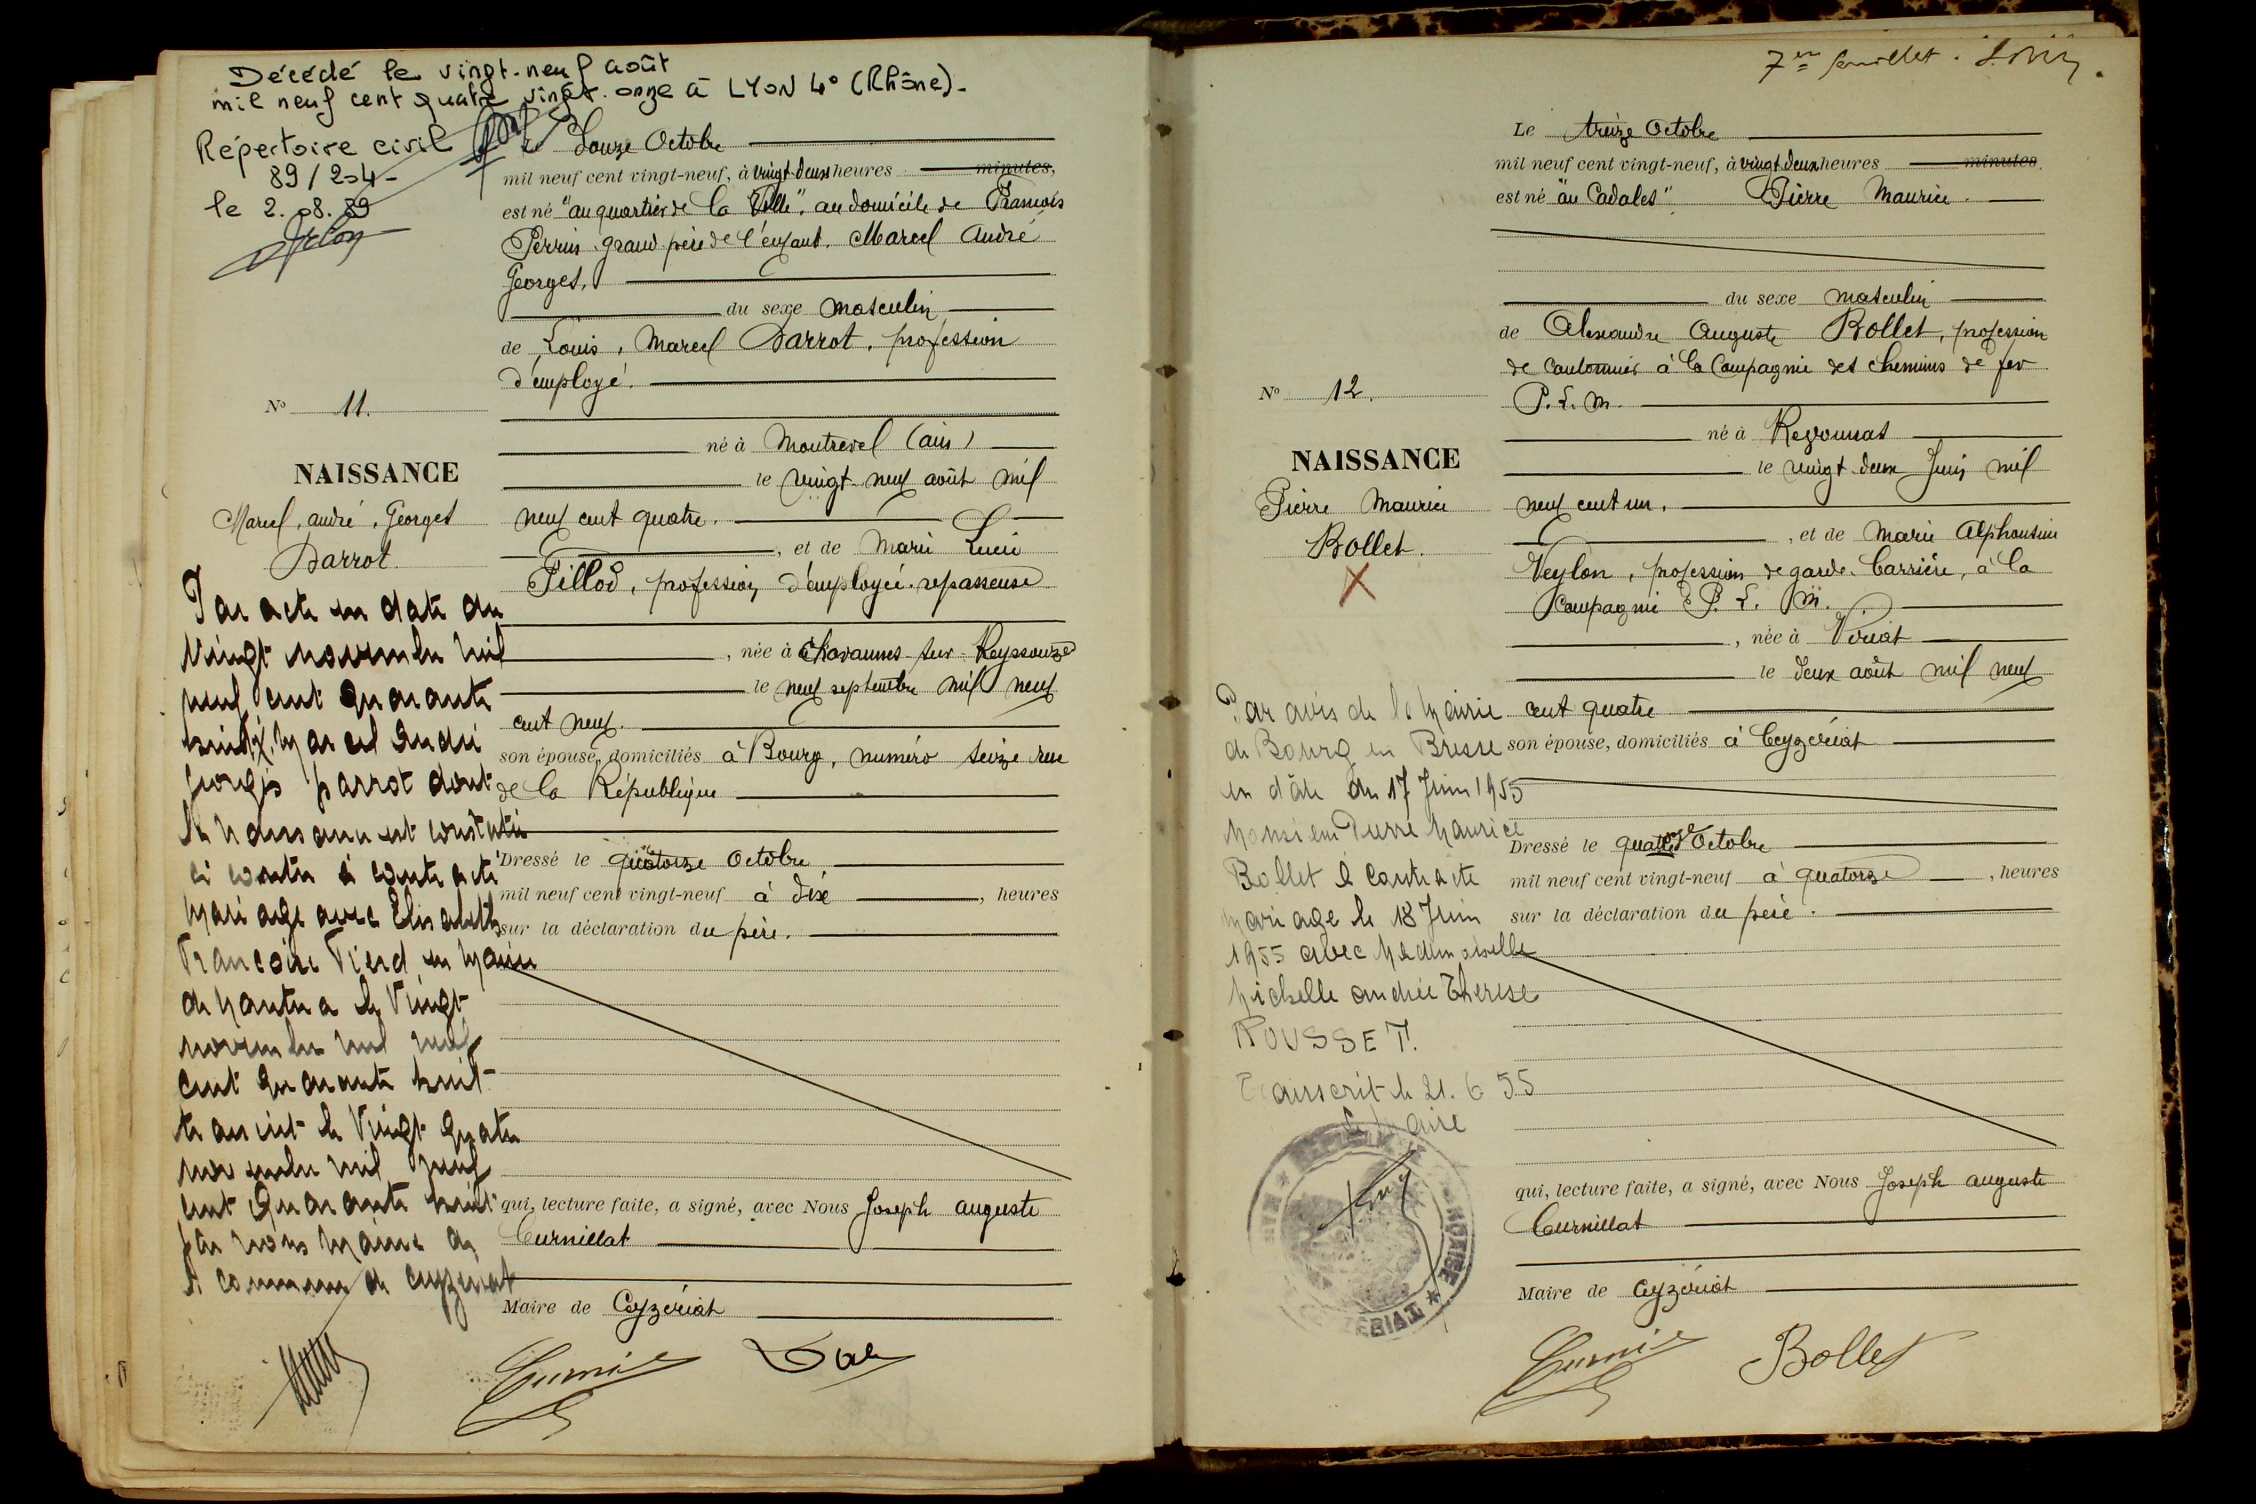 Décédé le vingt-neuf août
mil neuf cent quatre vingt onze à LYON 4° (Rhône)-
Répertoire civil
89/204-
le 2.08.89
N° 11.
NAISSANCE
Marcel, André, Georges
Darrot
Par acte en date du
vingt novembre mil
neuf cent quarante
huit, Marcel André
Georges Darrot dont
la naissance est constatée
ci contre a contracté
mariage avec Elisabeth
Françoise en Mairie
de Nantua le vingt
novembre mil neuf
cent quarante huit
transcrit le vingt quatre
novembre mil neuf
cent quarante huit
par nous Maire de
la commune de Ceyzériat
Le Douze Octobre
mil neuf cent vingt-neuf, à vingt deux heures minutes,
est né "au quartier de la Ville", au domicile de François
Perrin grand père de l'enfant. Marcel André
Georges,
du sexe masculin
de Louis, Marcel Darrot, profession
d'employé.
né à Montrevel (Ain)
le vingt neuf août mil
neuf cent quatre.
, et de Marie Lucie
Pillod, profession d'employée repasseuse
, née à Chavannes-sur-Reyssouze
le neuf septembre mil neuf
cent neuf.
son épouse, domiciliés à Bourg, numéro seize rue
de la République
Dressé le quatorze Octobre
mil neuf cent vingt-neuf à dix , heures
sur la déclaration du père.
qui, lecture faite, a signé, avec Nous Joseph Auguste
Curnillat
Maire de Ceyzériat
7me feuillet.
N° 12.
NAISSANCE
Pierre Maurice
Bollet.
X
Par avis de la Mairie
de Bourg en Bresse
en dâte du 17 Juin 1955
Monsieur Pierre Maurice
Bollet a contracté
mariage le 18 Juin
1955 avec Mademoiselle
Michelle Andrée Thérèse
ROUSSET.
Transcrit le 21.6.55
Le Maire
RÉPUBLIQUE FRANÇAISE
CEYZERIAT
Le treize Octobre
mil neuf cent vingt-neuf, à vingt deux heures minutes
est né "au Cadales" Pierre Maurice.
du sexe masculin
de Alexandre Auguste Bollet, profession
de cantonnier à la Compagnie des chemins de fer
P. L. M.
né à Revonnas
le vingt deux Juin mil
neuf cent un.
, et de Marie Alphonsine
Veylon, profession de garde-barrière, à la
Compagnie P. L. M.
, née à Viriat
le deux août mil neuf
cent quatre
son épouse, domiciliés à Ceyzériat
Dressé le quatorze Octobre
mil neuf cent vingt-neuf à quatorze , heures
sur la déclaration du père.
qui, lecture faite, a signé, avec Nous Joseph Auguste
Curnillat
Maire de Ceyzériat
Bollet